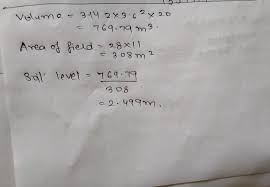 Volume = 3.14 2 x 3.6² x 20
= 769.79 m³.
Area of field = 28 x 11
= 308 m²
level = 769.79
308
= 2.499 m.